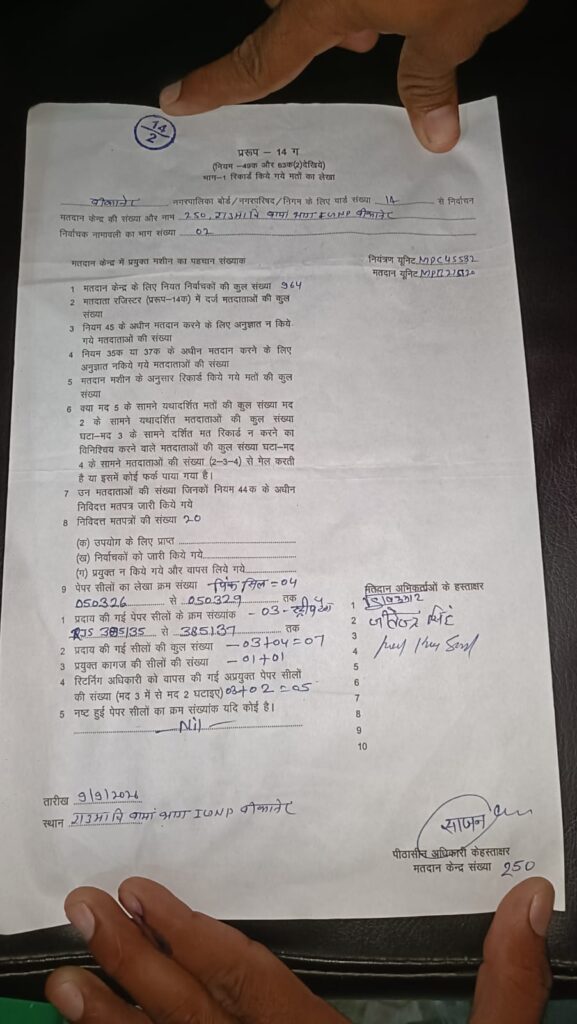 14/2
प्ररूप – 14 ग
(नियम –49क और 63क(2)देखिये)
भाग–1 रिकार्ड किये गये मतों का लेखा
बीकानेर नगरपालिका बोर्ड/नगरपरिषद/निगम के लिए वार्ड संख्या 14 से निर्वाचन
मतदान केन्द्र की संख्या और नाम 250, राउमावि बायां भाग IUNP बीकानेर
निर्वाचक नामावली का भाग संख्या 02
मतदान केन्द्र में प्रयुक्त मशीन का पहचान संख्याक
नियंत्रण यूनिट MPC45582
मतदान यूनिट
1 मतदान केन्द्र के लिए नियत निर्वाचकों की कुल संख्या 964
2 मतदाता रजिस्टर (प्ररूप–14क) में दर्ज मतदाताओं की कुल
संख्या
3 नियम 45 के अधीन मतदान करने के लिए अनुज्ञात न किये
गये मतदाताओं की संख्या
4 नियम 35क या 37क के अधीन मतदान करने के लिए
अनुज्ञात नकिये गये मतदाताओं की संख्या
5 मतदान मशीन के अनुसार रिकार्ड किये गये मतों की कुल
संख्या
6 क्या मद 5 के सामने यथादर्शित मतों की कुल संख्या मद
2 के सामने यथादर्शित मतदाताओं की कुल संख्या
घटा–मद 3 के सामने दर्शित मत रिकार्ड न करने का
विनिश्चिय करने वाले मतदाताओं की कुल संख्या घटा–मद
4 के सामने मतदाताओं की संख्या (2–3–4) से मेल करती
है या इसमें कोई फर्क पाया गया है।
7 उन मतदाताओं की संख्या जिनकों नियम 44क के अधीन
निविदत्त मतपत्र जारी किये गये
8 निविदत्त मतपत्रों की संख्या 20
(क) उपयोग के लिए प्राप्त
(ख) निर्वाचकों को जारी किये गये
(ग) प्रयुक्त न किये गये और वापस लिये गये
9 पेपर सीलों का लेखा क्रम संख्या पिंक सिल = 04
050326 से 050329 तक
1 प्रदाय की गई पेपर सीलों के क्रम संख्यांक – 03 - स्ट्रीप
RJS 385135 से 385137 तक
2 प्रदाय की गई सीलों की कुल संख्या – 03+04=07
3 प्रयुक्त कागज की सीलों की संख्या – 01+01
4 रिटर्निंग अधिकारी को वापस की गई अप्रयुक्त पेपर सीलों
की संख्या (मद 3 में से मद 2 घटाइए) 03+02=05
5 नष्ट हुई पेपर सीलों का क्रम संख्यांक यदि कोई है।
Nil
मतदान अभिकर्त्ताओं के हस्ताक्षर
1
2
3
4
5
6
7
8
9
10
तारीख 9/9/2026
स्थान राउमावि बायां भाग IUNP बीकानेर
साजन
पीठासीन अधिकारी केहस्ताक्षर
मतदान केन्द्र संख्या 250